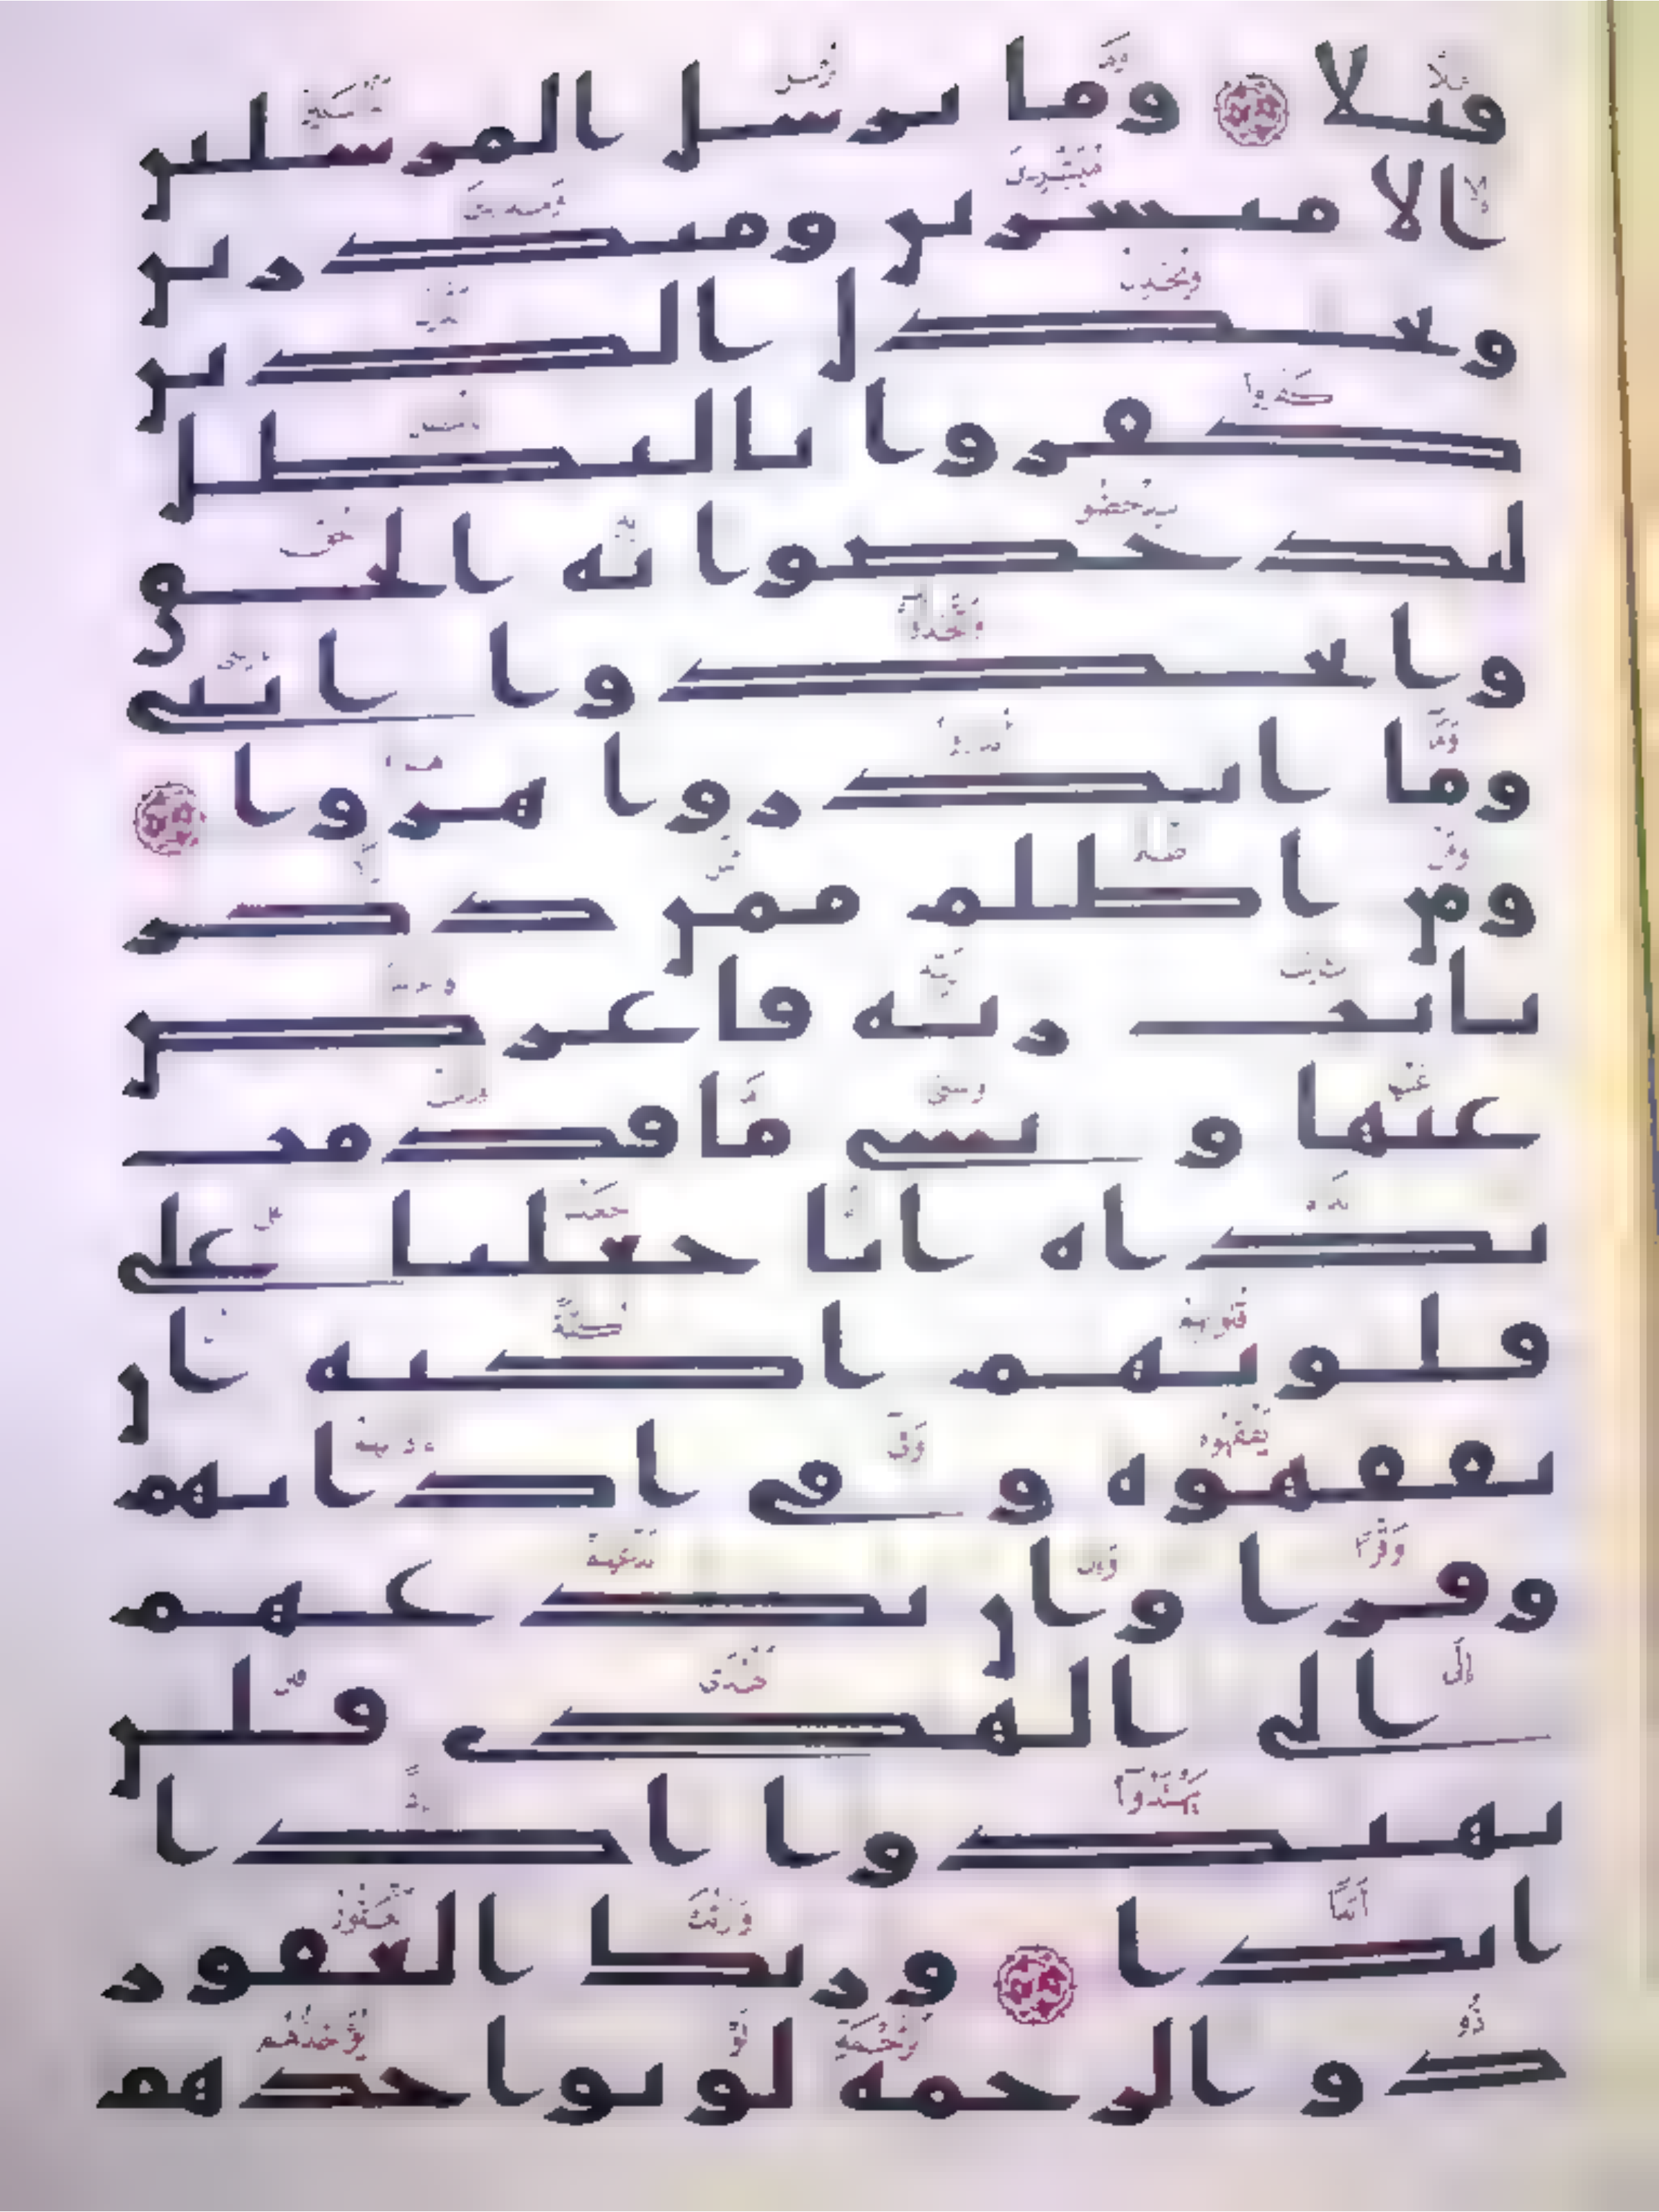 قبلا وما نرسل المرسلين
الا مبشرين ومنذرين
ويجدل الذين
كفروا بالبطل
ليدحضوا به الحق
واتخذوا ايتي
وما انذروا هزوا
ومن اظلم ممن ذكر
بايت ربه فاعرض
عنها ونسي ما قدمت
يداه انا جعلنا على
قلوبهم اكنة ان
يفقهوه وفي اذانهم
وقرا وان تدعهم
الى الهدى فلن
يهتدوا اذا
ابدا وربك الغفور
ذو الرحمة لو يواخذهم